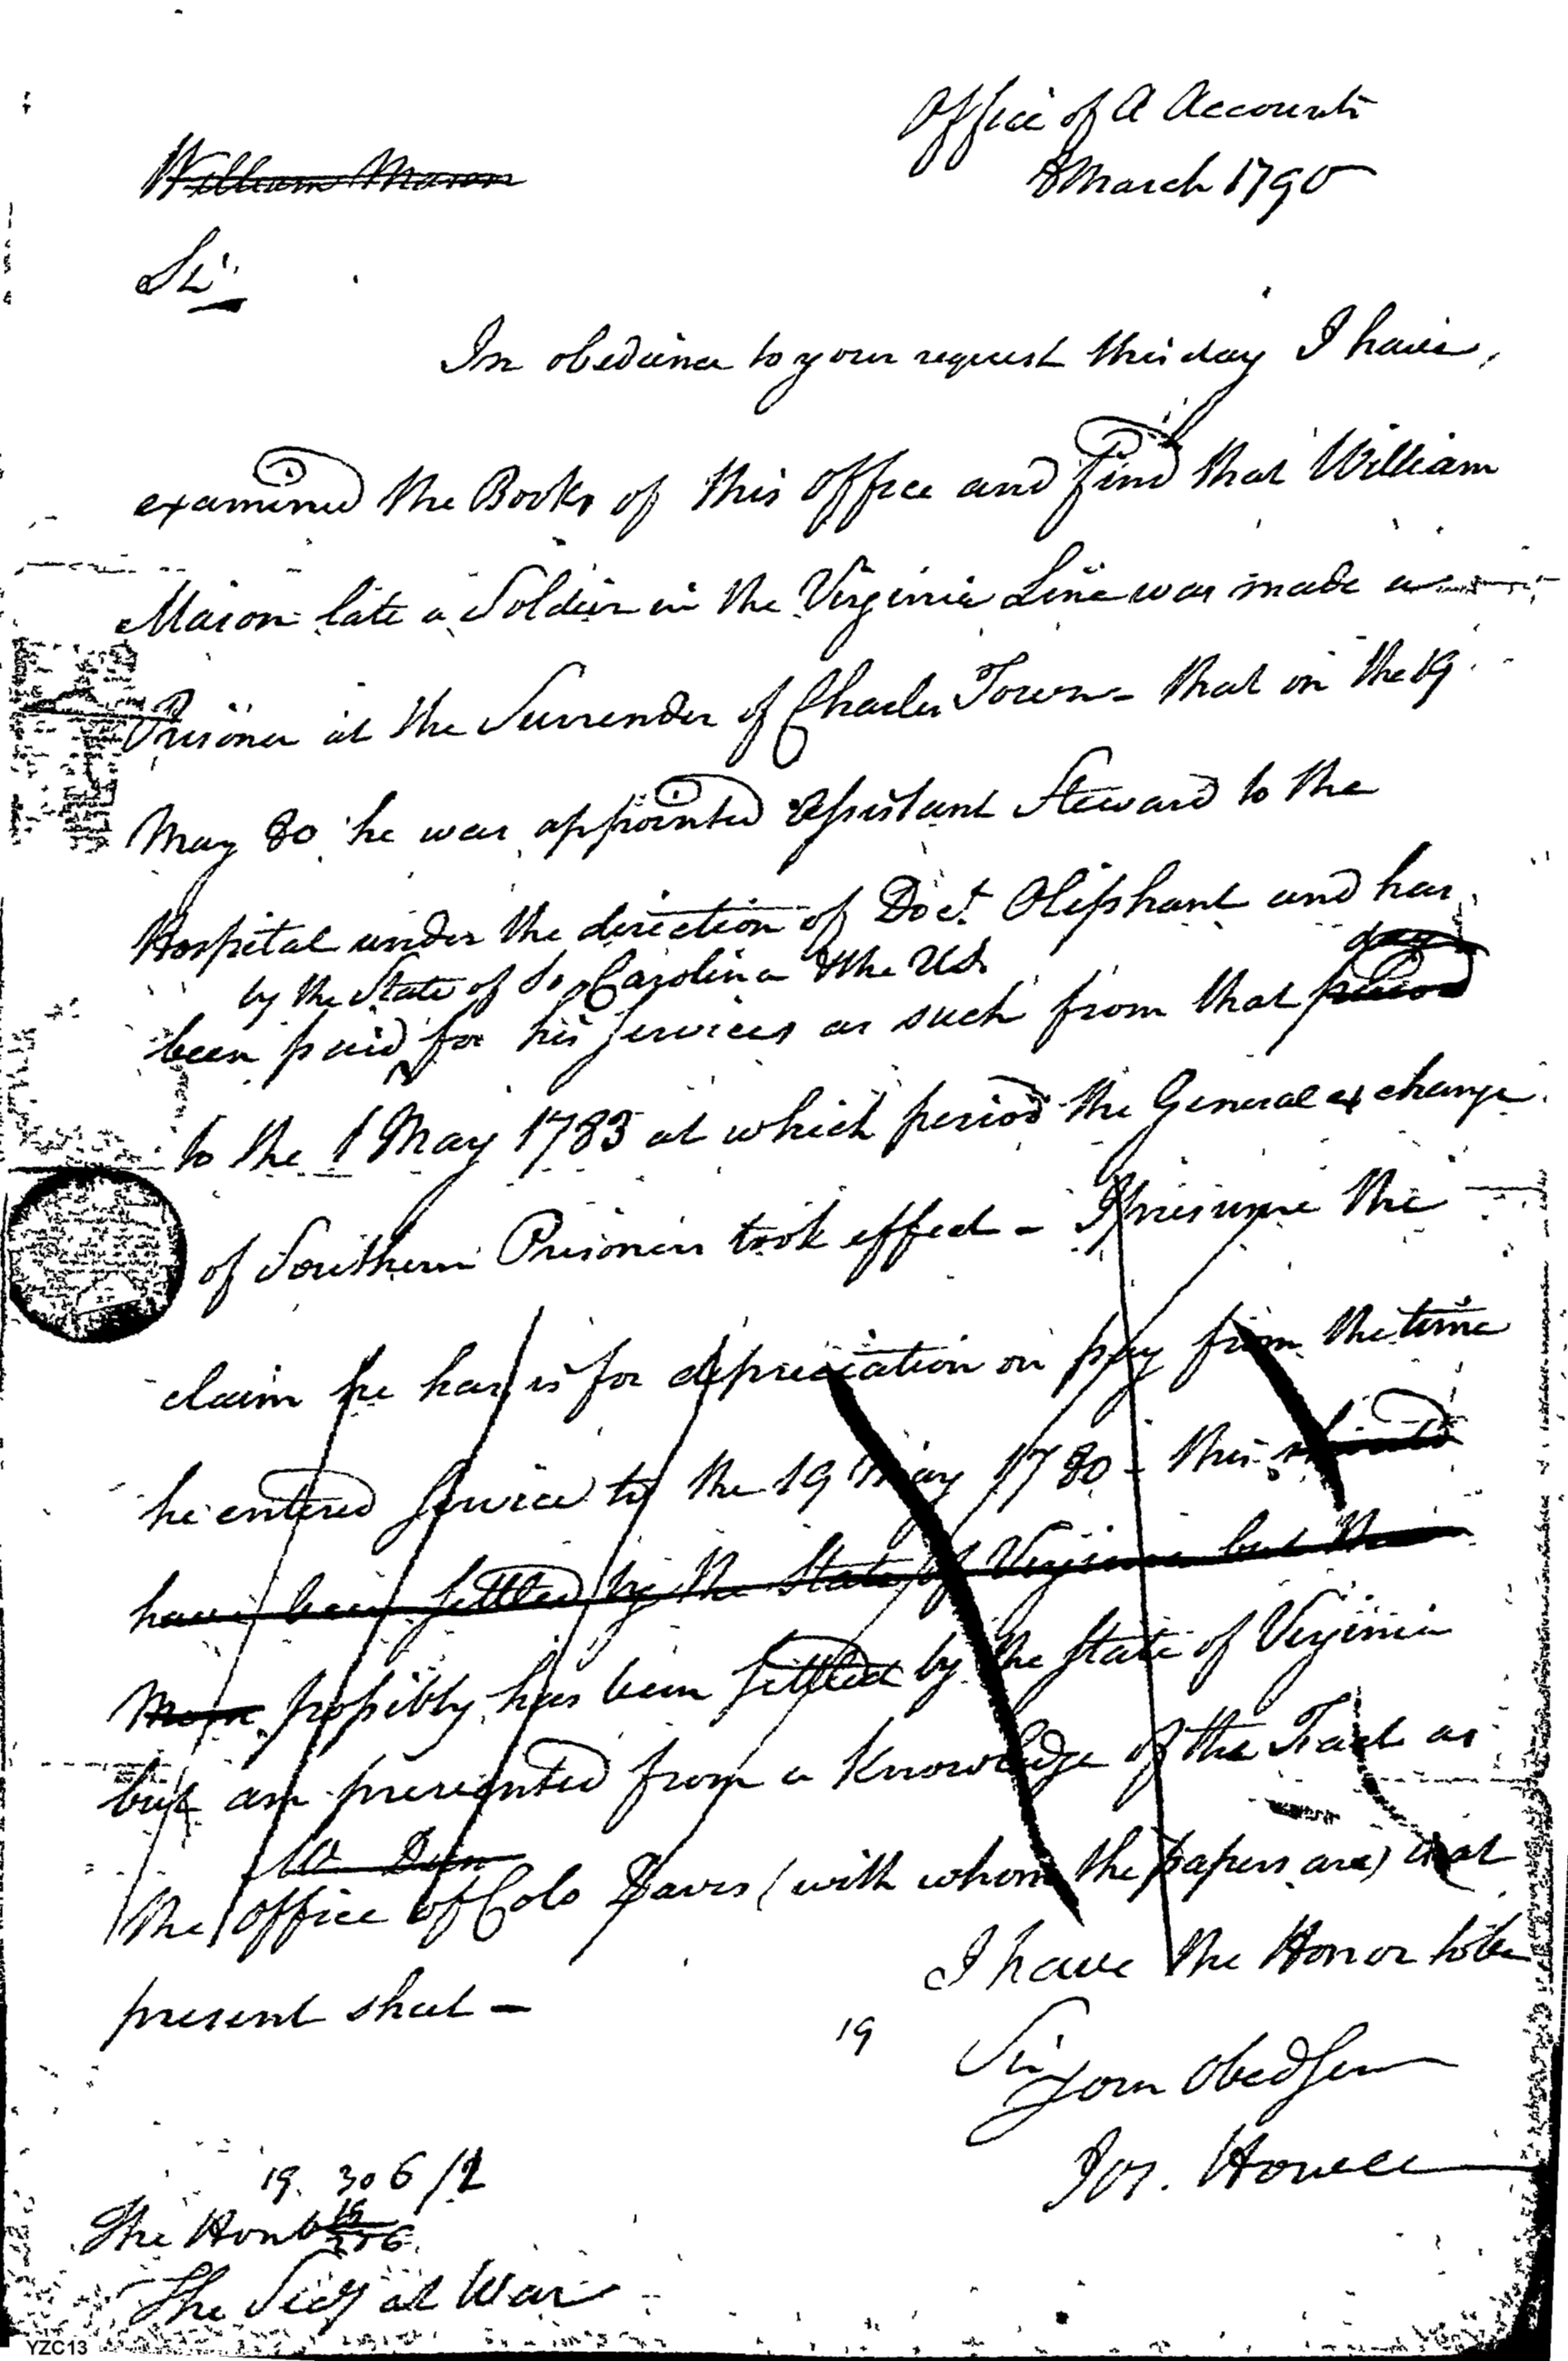 Office of A Accounts
8 March 1790
William Mason
Sir
In obedience to your request this day I have
examined the Books of this Office and find that William
Mason late a Soldier in the Virginia Line was made a
Prisoner at the Surrender of Charles Town - that on the 19
May 80 he was appointed Assistant Steward to the
Hospital under the direction of Doct. Oliphant and has
by the State of So Carolina & the US
day
been paid for his services as such from that period
to the 1 May 1783 at which period the General exchange
of Southern Prisoners took effect - I presume the
claim he has is for depreciation on pay from the time
he entered Service to the 19 May 1780 - this should
have been settled by the State of Virginia but the
possibly has been settled by the State of Virginia
but am prevented from a Knowledge of the Fact as
W Dun
the office of Colo Davis (with whom the papers are) is at
present shut -
I have the Honor to be
19
Sir
Your Obed Serv
Jos. Howell
19. 306 / 2
The Honble
19
306
The Secy at War
YZC13